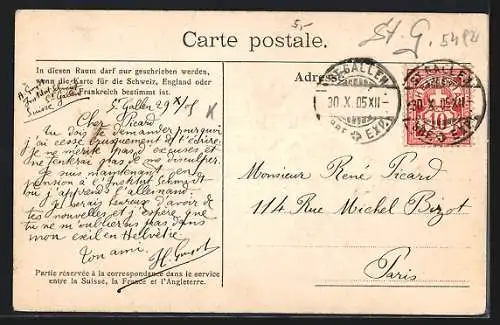 5,-
St. G. 5482
Carte postale.
In diesen Raum darf nur geschrieben werden,
wenn die Karte für die Schweiz, England oder
Frankreich bestimmt ist.
Adresse
ST. GALLEN
30. X. 05 XII-
BRF. EXP.
ST. GALLEN
30. X. 05 XII-
BRF. EXP.
10
Institut Schmidt
St Gallen
Suisse
St Gallen 29 X/05
K
Cher Picard
Tu dois te demander pourquoi
j'ai cessé brusquement de t'écrire
je ne mérite pas d'excuses et
ne tenterai pas de me disculper.
Je suis maintenant en
pension à l'Institut Schmidt
où j'apprends l'allemand.
Je serais heureux d'avoir de
tes nouvelles et j'espère que
tu ne m'oublieras pas dans
mon exil en Helvétie.
Ton ami.
Monsieur René Picard
114 Rue Michel Bizot
Paris
Partie réservée à la correspondance dans le service
entre la Suisse, la France et l'Angleterre.